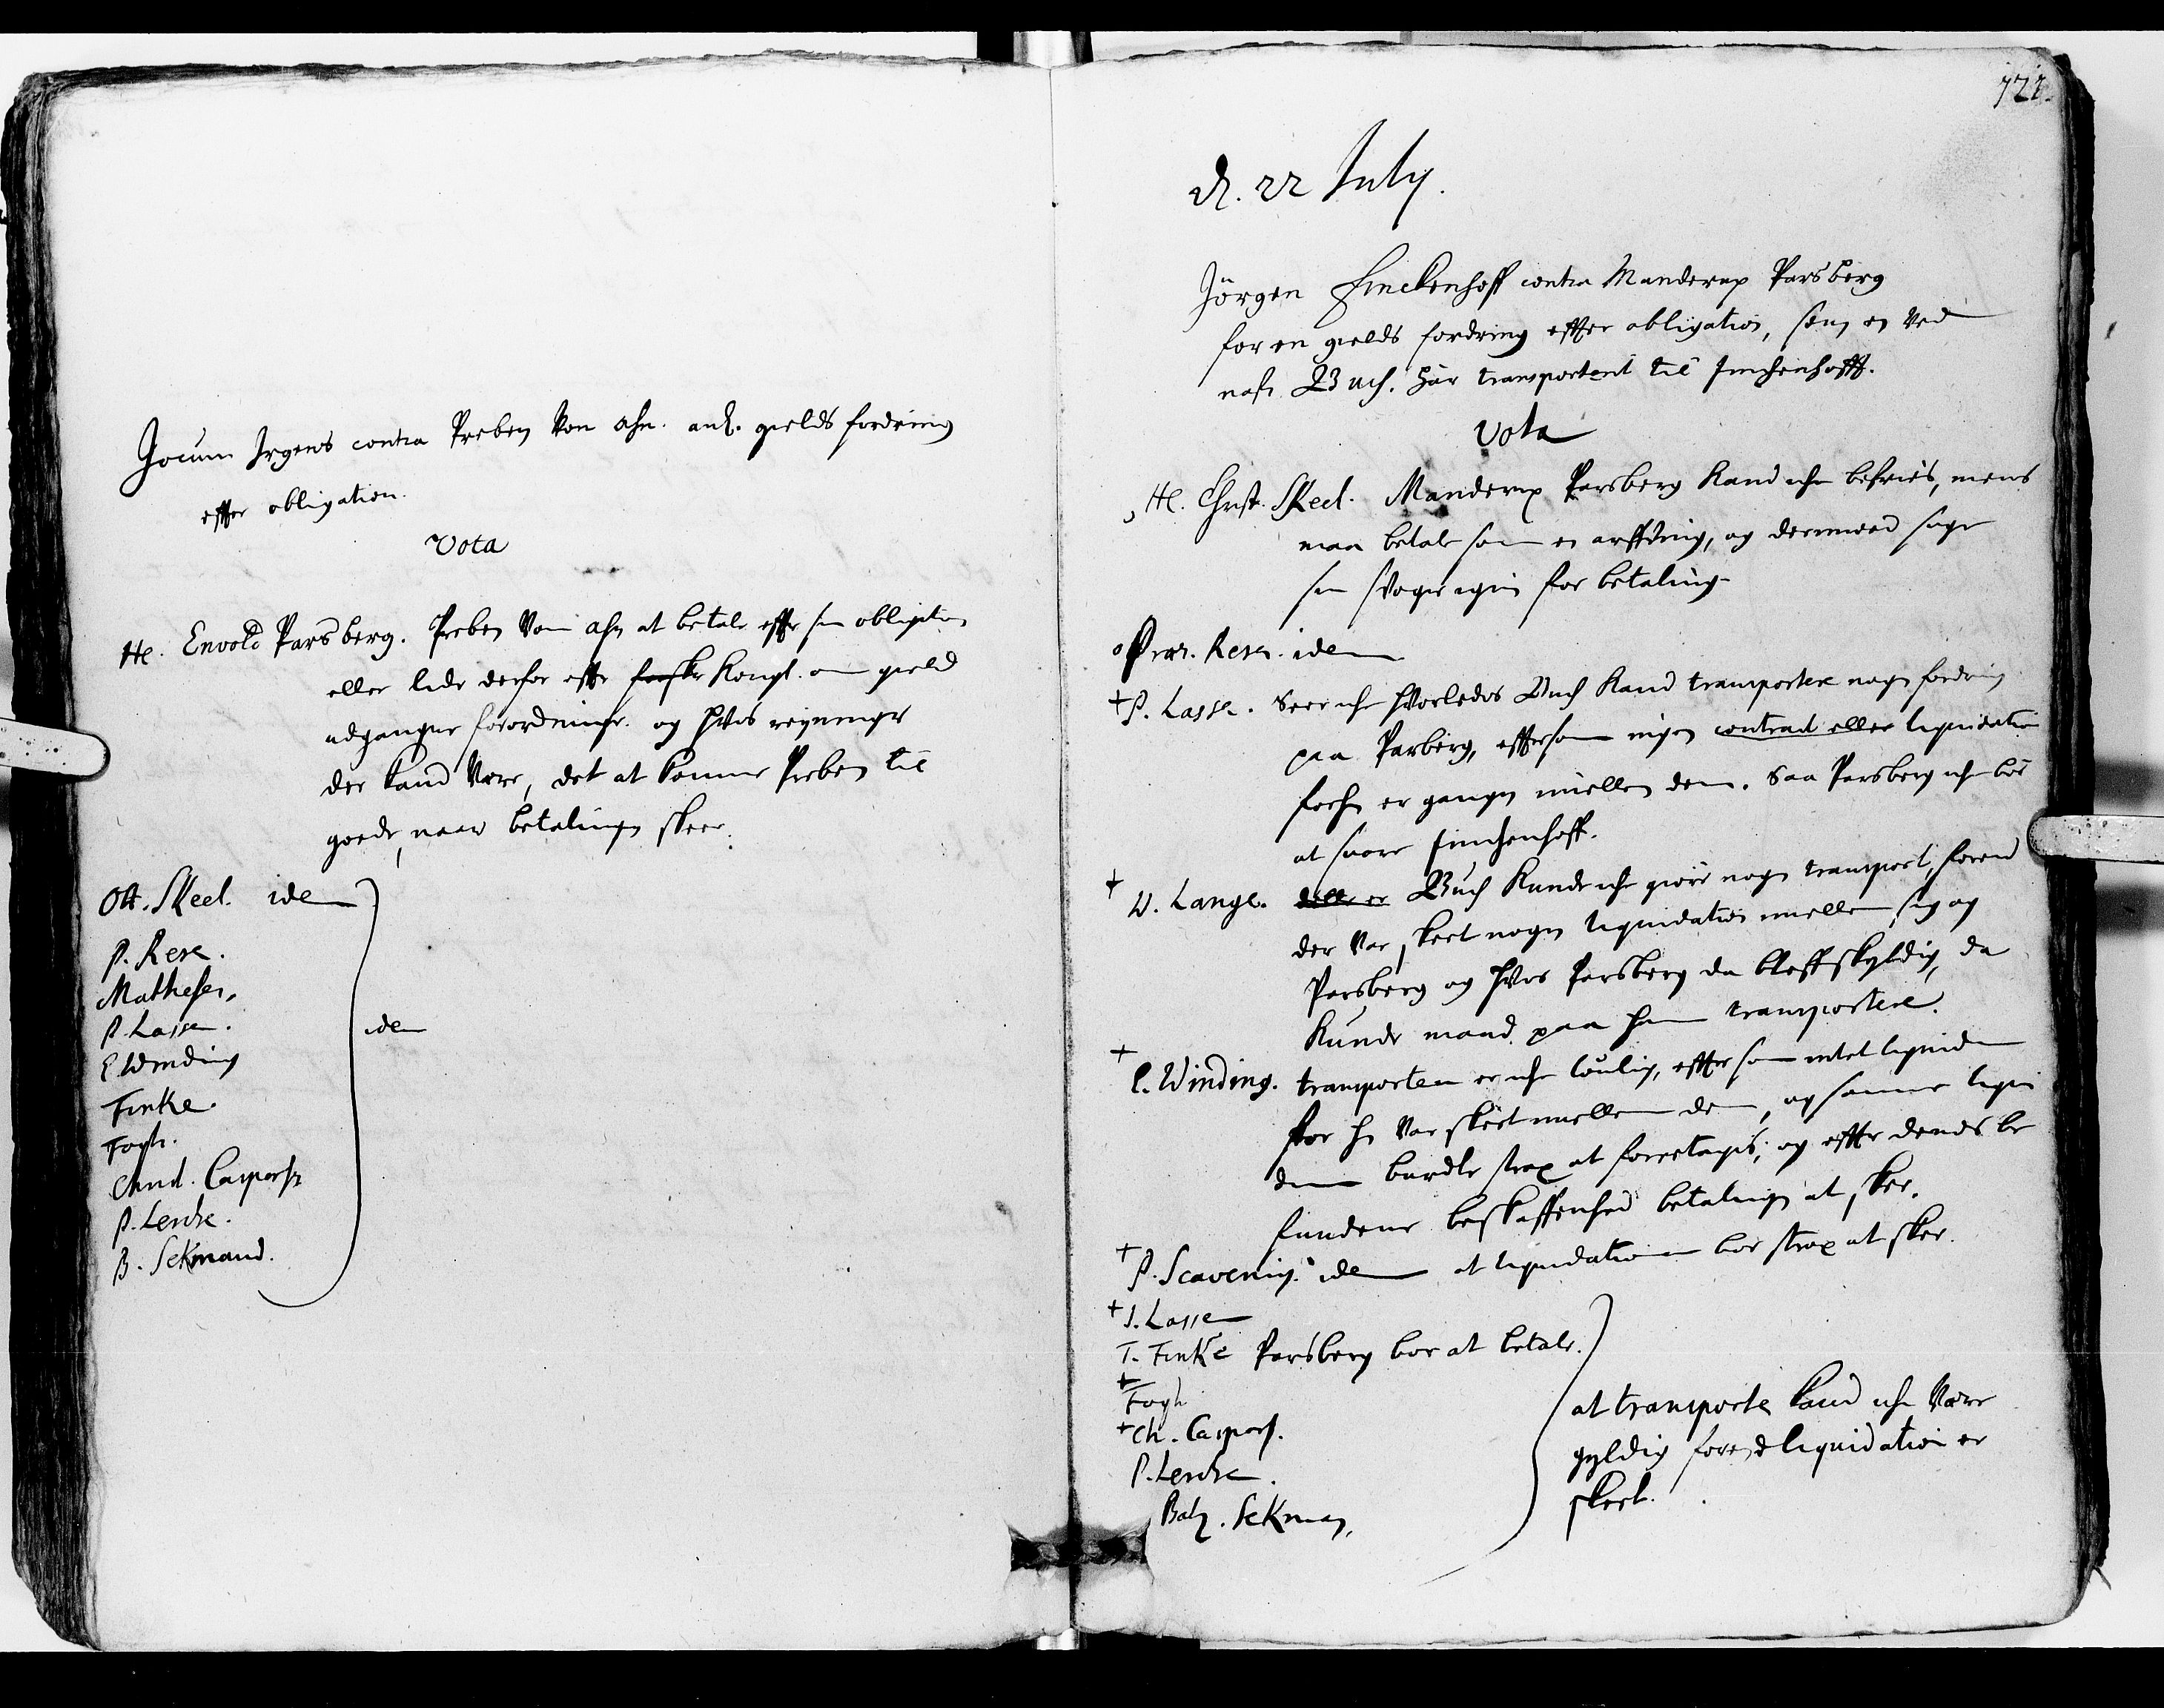 Jocum Irgens contra Preben Von Ahn. anl. gields fordring
effter obligation.
Vota
He. Envold Parsberg. Preben Von Ahn at betale effter sin obligation
eller lide derfor effter Kongl. om gield
udgangne forordninger. og hvis reigninger
der kand være, det at komme Preben til
gode, naar betalingen skeer.
Ott. Skeel. idem
P. Rese.
Mathesen.
P. Lassen.
idem
E Winding
Finke.
Fogh.
Christ. Caspers.
P. Lerche.
B. Sekmand.
721.
d. 22 July.
Jörgen Finckenhoff contra Manderup Parsberg
for en gields fordring effter obligation, som en Ved
nafn Buch. har transporterit til Finchenhoff.
Vota
He. Christ. Skeel. Manderup Parsberg Kand iche befries, mens
maa betale som en arffving, og dermed søge
sin Svoger igien for betaling
Præs. Resen. idem
+ P. Lasse. Seer iche hvorledes Buch Kand transportere nogen fordring
paa Parberg, efftersom ingen contract eller liquidation
forhen er gangen imellem dem. Saa Parsberg iche bør
at svare Finchenhoff.
+ W. Lange. Buch Kunde iche giøre nogen transport, førend
der var skeet nogen liquidation imellem sig og
Parsberg og hvis Parsberg da bleff skyldig, da
Kunde mand paa ham transportere.
+ E. Winding. transporten er iche loulig, effter som intet liquidation
før her var skeet imellem dem, og samme liqui
dation burde strax at foretages; og effter dends be
fundene beskaffenhed betalingen at skee.
+ P. Scavenig. idem at liquidationen bør strax at skee.
+ I. Lassen
T. Finke Parsberg bør at betale.
+ Fogh
+ Ch. Caspers.
P. Lerche.
Balz. Sekman,
at transporten kand iche være
gyldig førend liquidation er
skeet.